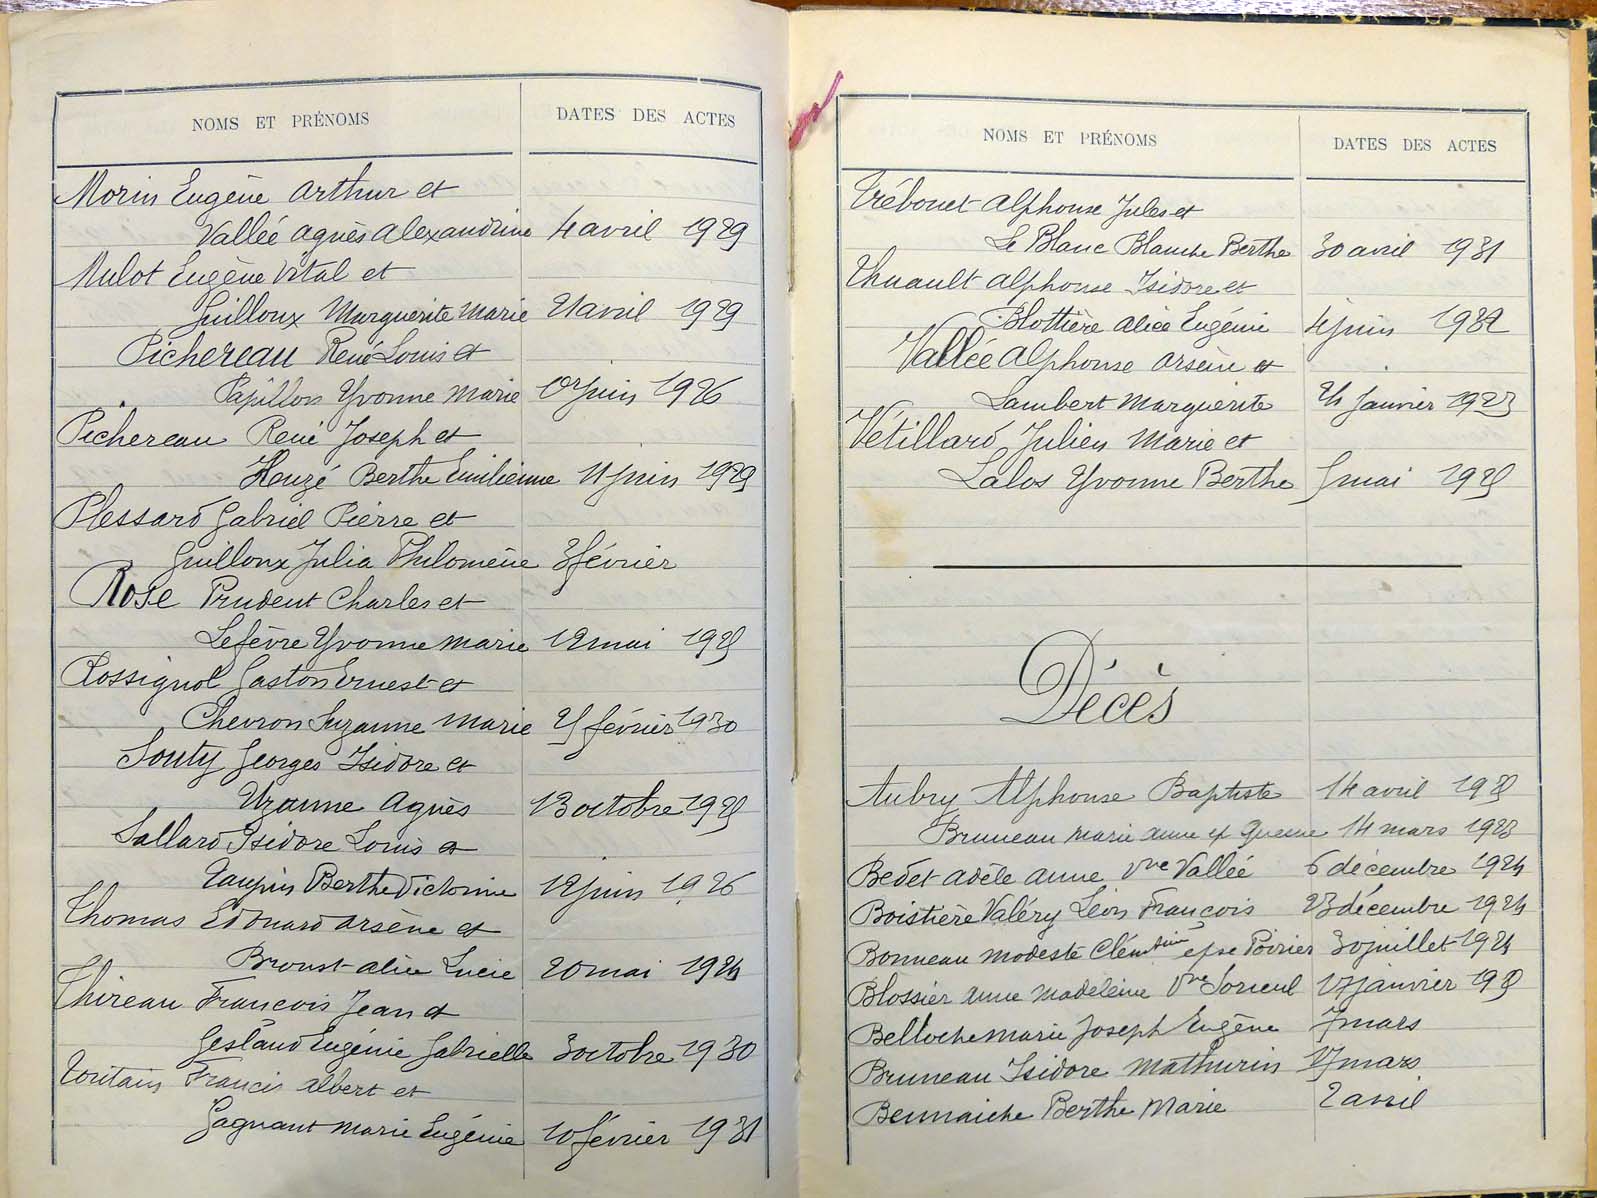 NOMS ET PRÉNOMS DATES DES ACTES
Morin Eugène Arthur et
Vallée Agnès Alexandrine 4 avril 1929
Mulot Eugène Vital et
Guilloux Marguerite Marie 21 avril 1929
Pichereau René Louis et
Papillon Yvonne Marie 1er juin 1926
Pichereau René Joseph et
Heuzé Berthe Emilienne 11 juin 1929
Plessard Gabriel Pierre et
Guilloux Julia Philomène 3 février
Rose Prudent Charles et
Lefèvre Yvonne Marie 12 mai 1925
Rossignol Gaston Ernest et
Chevron Suzanne Marie février 1930
Souty Georges Isidore et
Uzanne Agnès 13 octobre 1925
Sallard Isidore Louis et
Taupin Berthe Victorine 12 juin 1926
Thomas Edouard Arsène et
Broust Alice Lucie 20 mai 1924
Thireau François Jean et
Gesland Eugénie Gabrielle 3 octobre 1930
Toutain Francis Albert et
Gagnant Marie Eugénie 10 février 1931
NOMS ET PRÉNOMS DATES DES ACTES
Trébouet Alphonse Jules et
Le Blanc Blanche Berthe 30 avril 1931
Thuault Alphonse Isidore et
Blottière Alice Eugénie 4 juin
Vallée Alphonse Arsène et
Lambert Marguerite 24 Janvier 1923
Vétillard Julien Marie et
Lalos Yvonne Berthe 5 mai 1925
Décès
Aubry Alphonse Baptiste 14 avril
Bruneau Marie Anne 14 mars 1923
Bedet Adèle Anne Vve Vallée 6 décembre 1924
Boistière Valéry Léon François 23 décembre 1924
Bonneau Modeste Clémentine épse Poirier 30 juillet 1924
Blossier Anne Madeleine Vve Sorieul 17 janvier
Belloche Marie Joseph Eugène 7 mars
Bruneau Isidore Mathurin 17 mars
Bennaiche Berthe Marie 2 avril